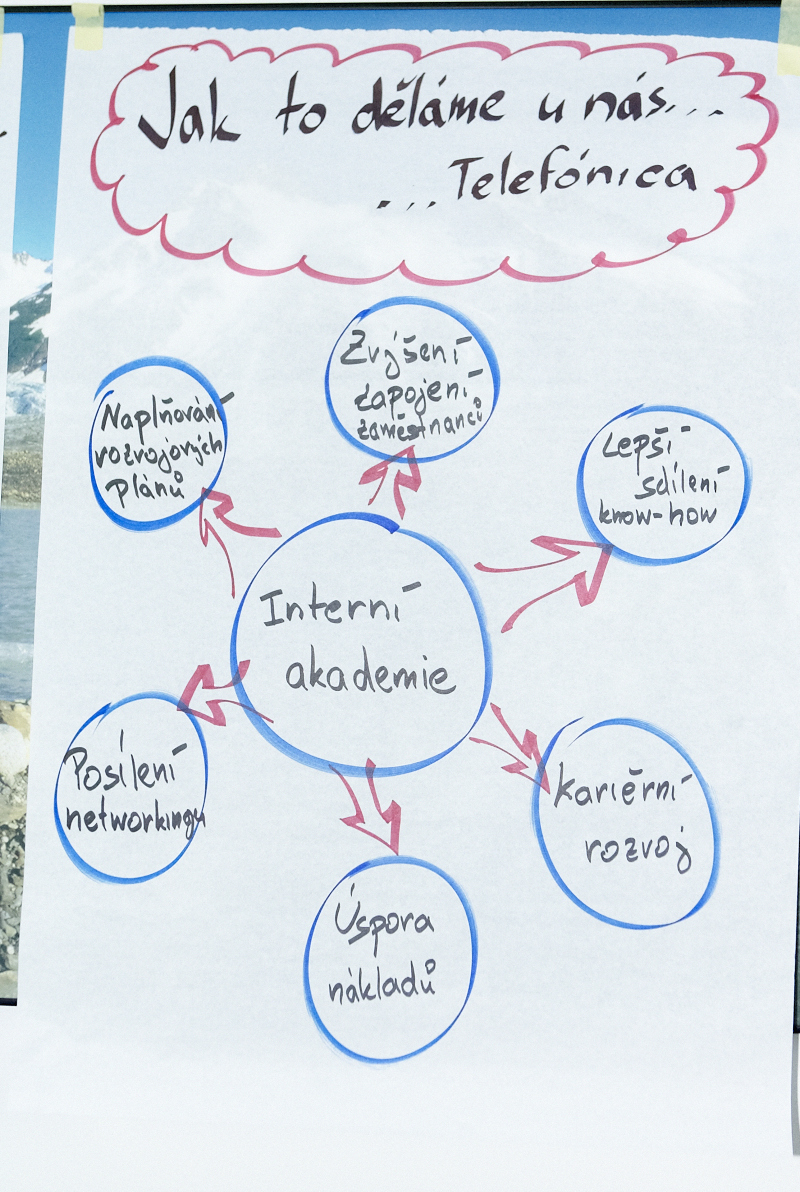 Jak to děláme u nás...
...Telefónica
Zvýšení
zapojení
zaměstnanců
Naplňování
rozvojových
plánů
Lepší
sdílení
know-how
Interní
akademie
Posílení
networkingu
Kariérní
rozvoj
Úspora
nákladů